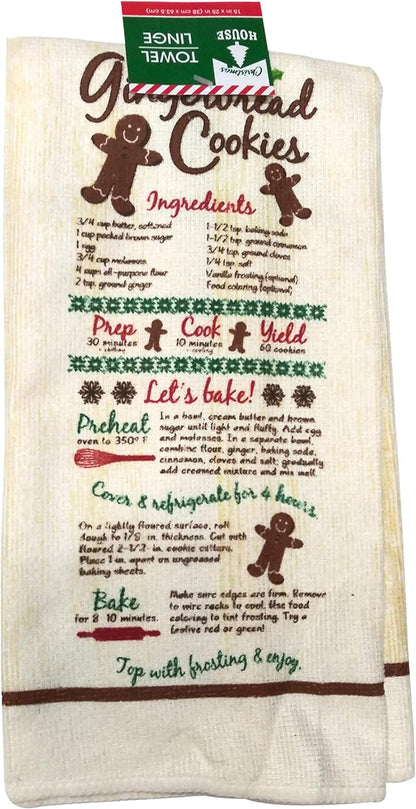 15 in x 25 in (38 cm x 63.5 cm)
TOWEL
LINGE
Christmas
HOUSE
Gingerbread
Cookies
Ingredients
3/4 cup butter, softened
1 cup packed brown sugar
1 egg
3/4 cup molasses
4 cups all-purpose flour
2 tsp. ground ginger
1-1/2 tsp. baking soda
1-1/2 tsp. ground cinnamon
3/4 tsp. ground cloves
1/4 tsp. salt
Vanilla frosting (optional)
Food coloring (optional)
Prep
30 minutes
+ chilling
Cook
10 minutes
+ cooling
Yield
60 cookies
Let's bake!
Preheat
oven to 350° F
In a bowl, cream butter and brown
sugar until light and fluffy. Add egg
and molasses. In a separate bowl,
combine flour, ginger, baking soda,
cinnamon, cloves and salt; gradually
add creamed mixture and mix well.
Cover & refrigerate for 4 hours.
On a lightly floured surface, roll
dough to 1/8-in. thickness. Cut with
floured 2-1/2-in. cookie cutters.
Place 1 in. apart on ungreased
baking sheets.
Bake
for 8-10 minutes.
Make sure edges are firm. Remove
to wire racks to cool. Use food
coloring to tint frosting. Try a
festive red or green!
Top with frosting & enjoy.